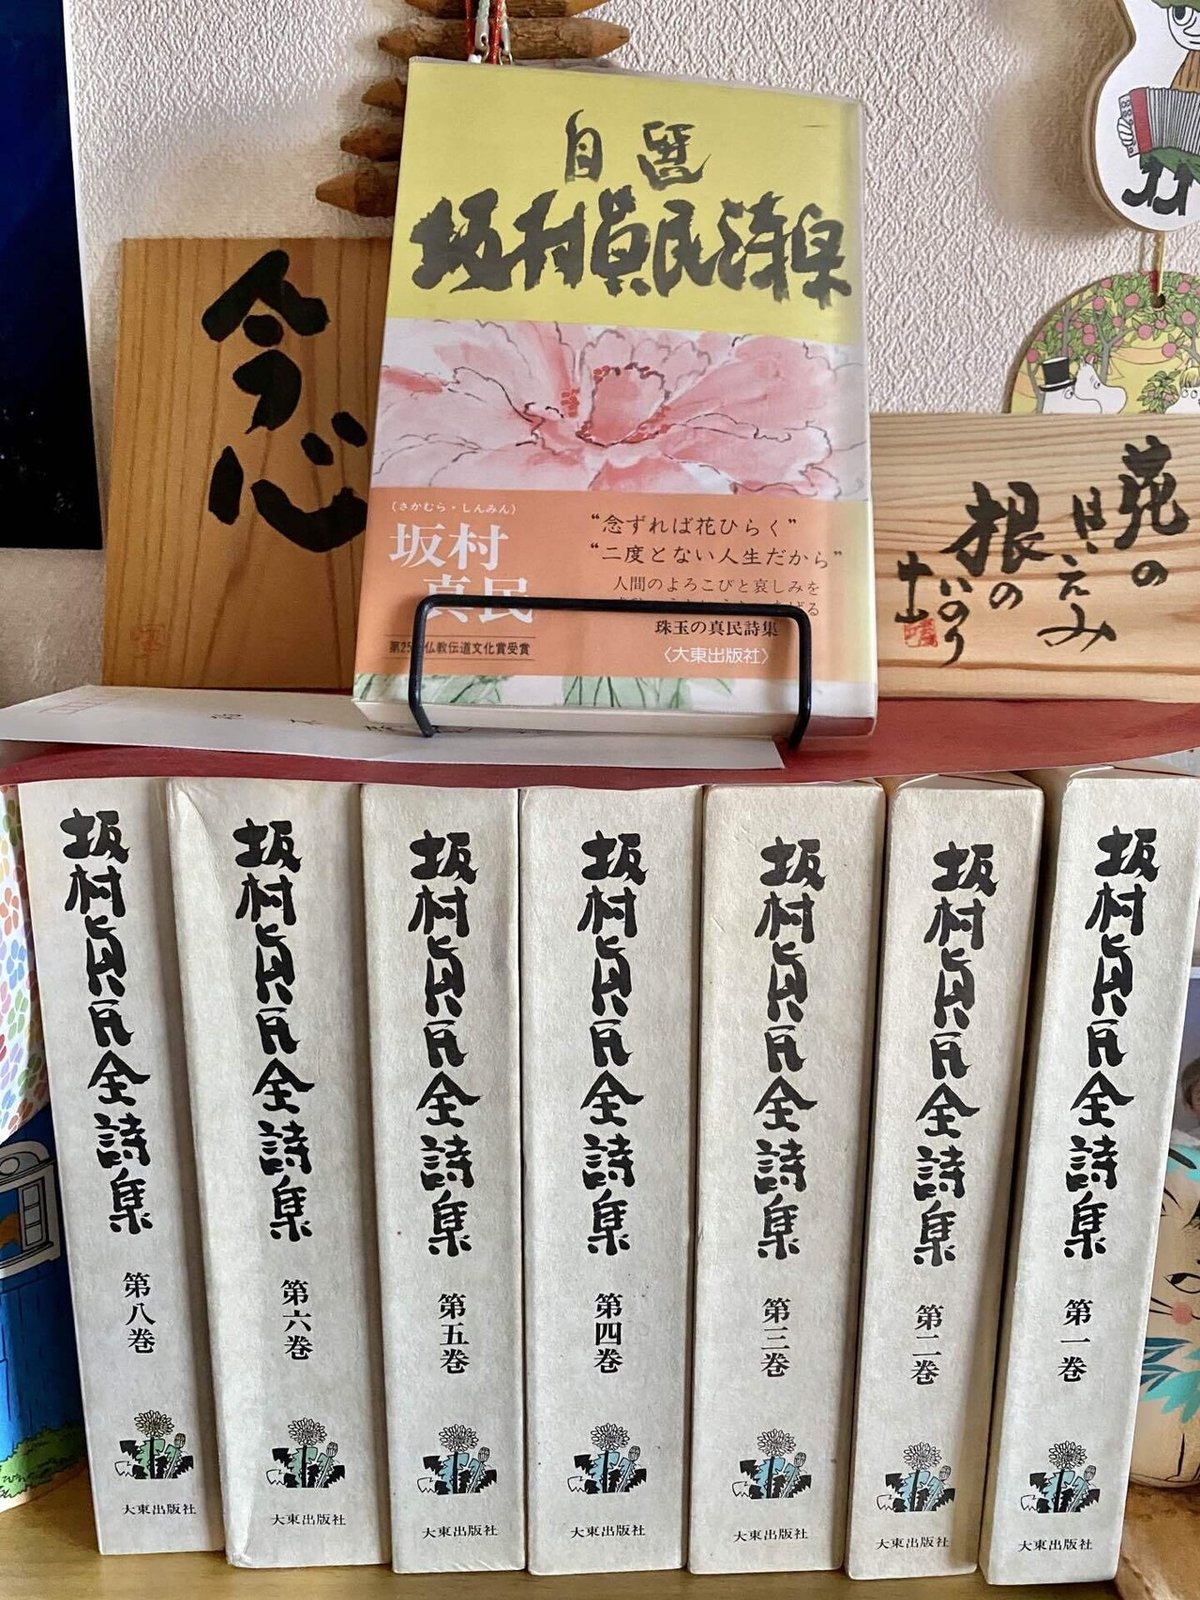 自選
坂村真民詩集
念
(さかむら・しんみん)
坂村
真民
“念ずれば花ひらく”
“二度とない人生だから”
人間のよろこびと哀しみを
珠玉の真民詩集
〈大東出版社〉
仏教伝道文化賞受賞
花の
根の
いのり
坂村真民全詩集 第八巻
大東出版社
坂村真民全詩集 第六巻
大東出版社
坂村真民全詩集 第五巻
大東出版社
坂村真民全詩集 第四巻
大東出版社
坂村真民全詩集 第三巻
大東出版社
坂村真民全詩集 第二巻
大東出版社
坂村真民全詩集 第一巻
大東出版社